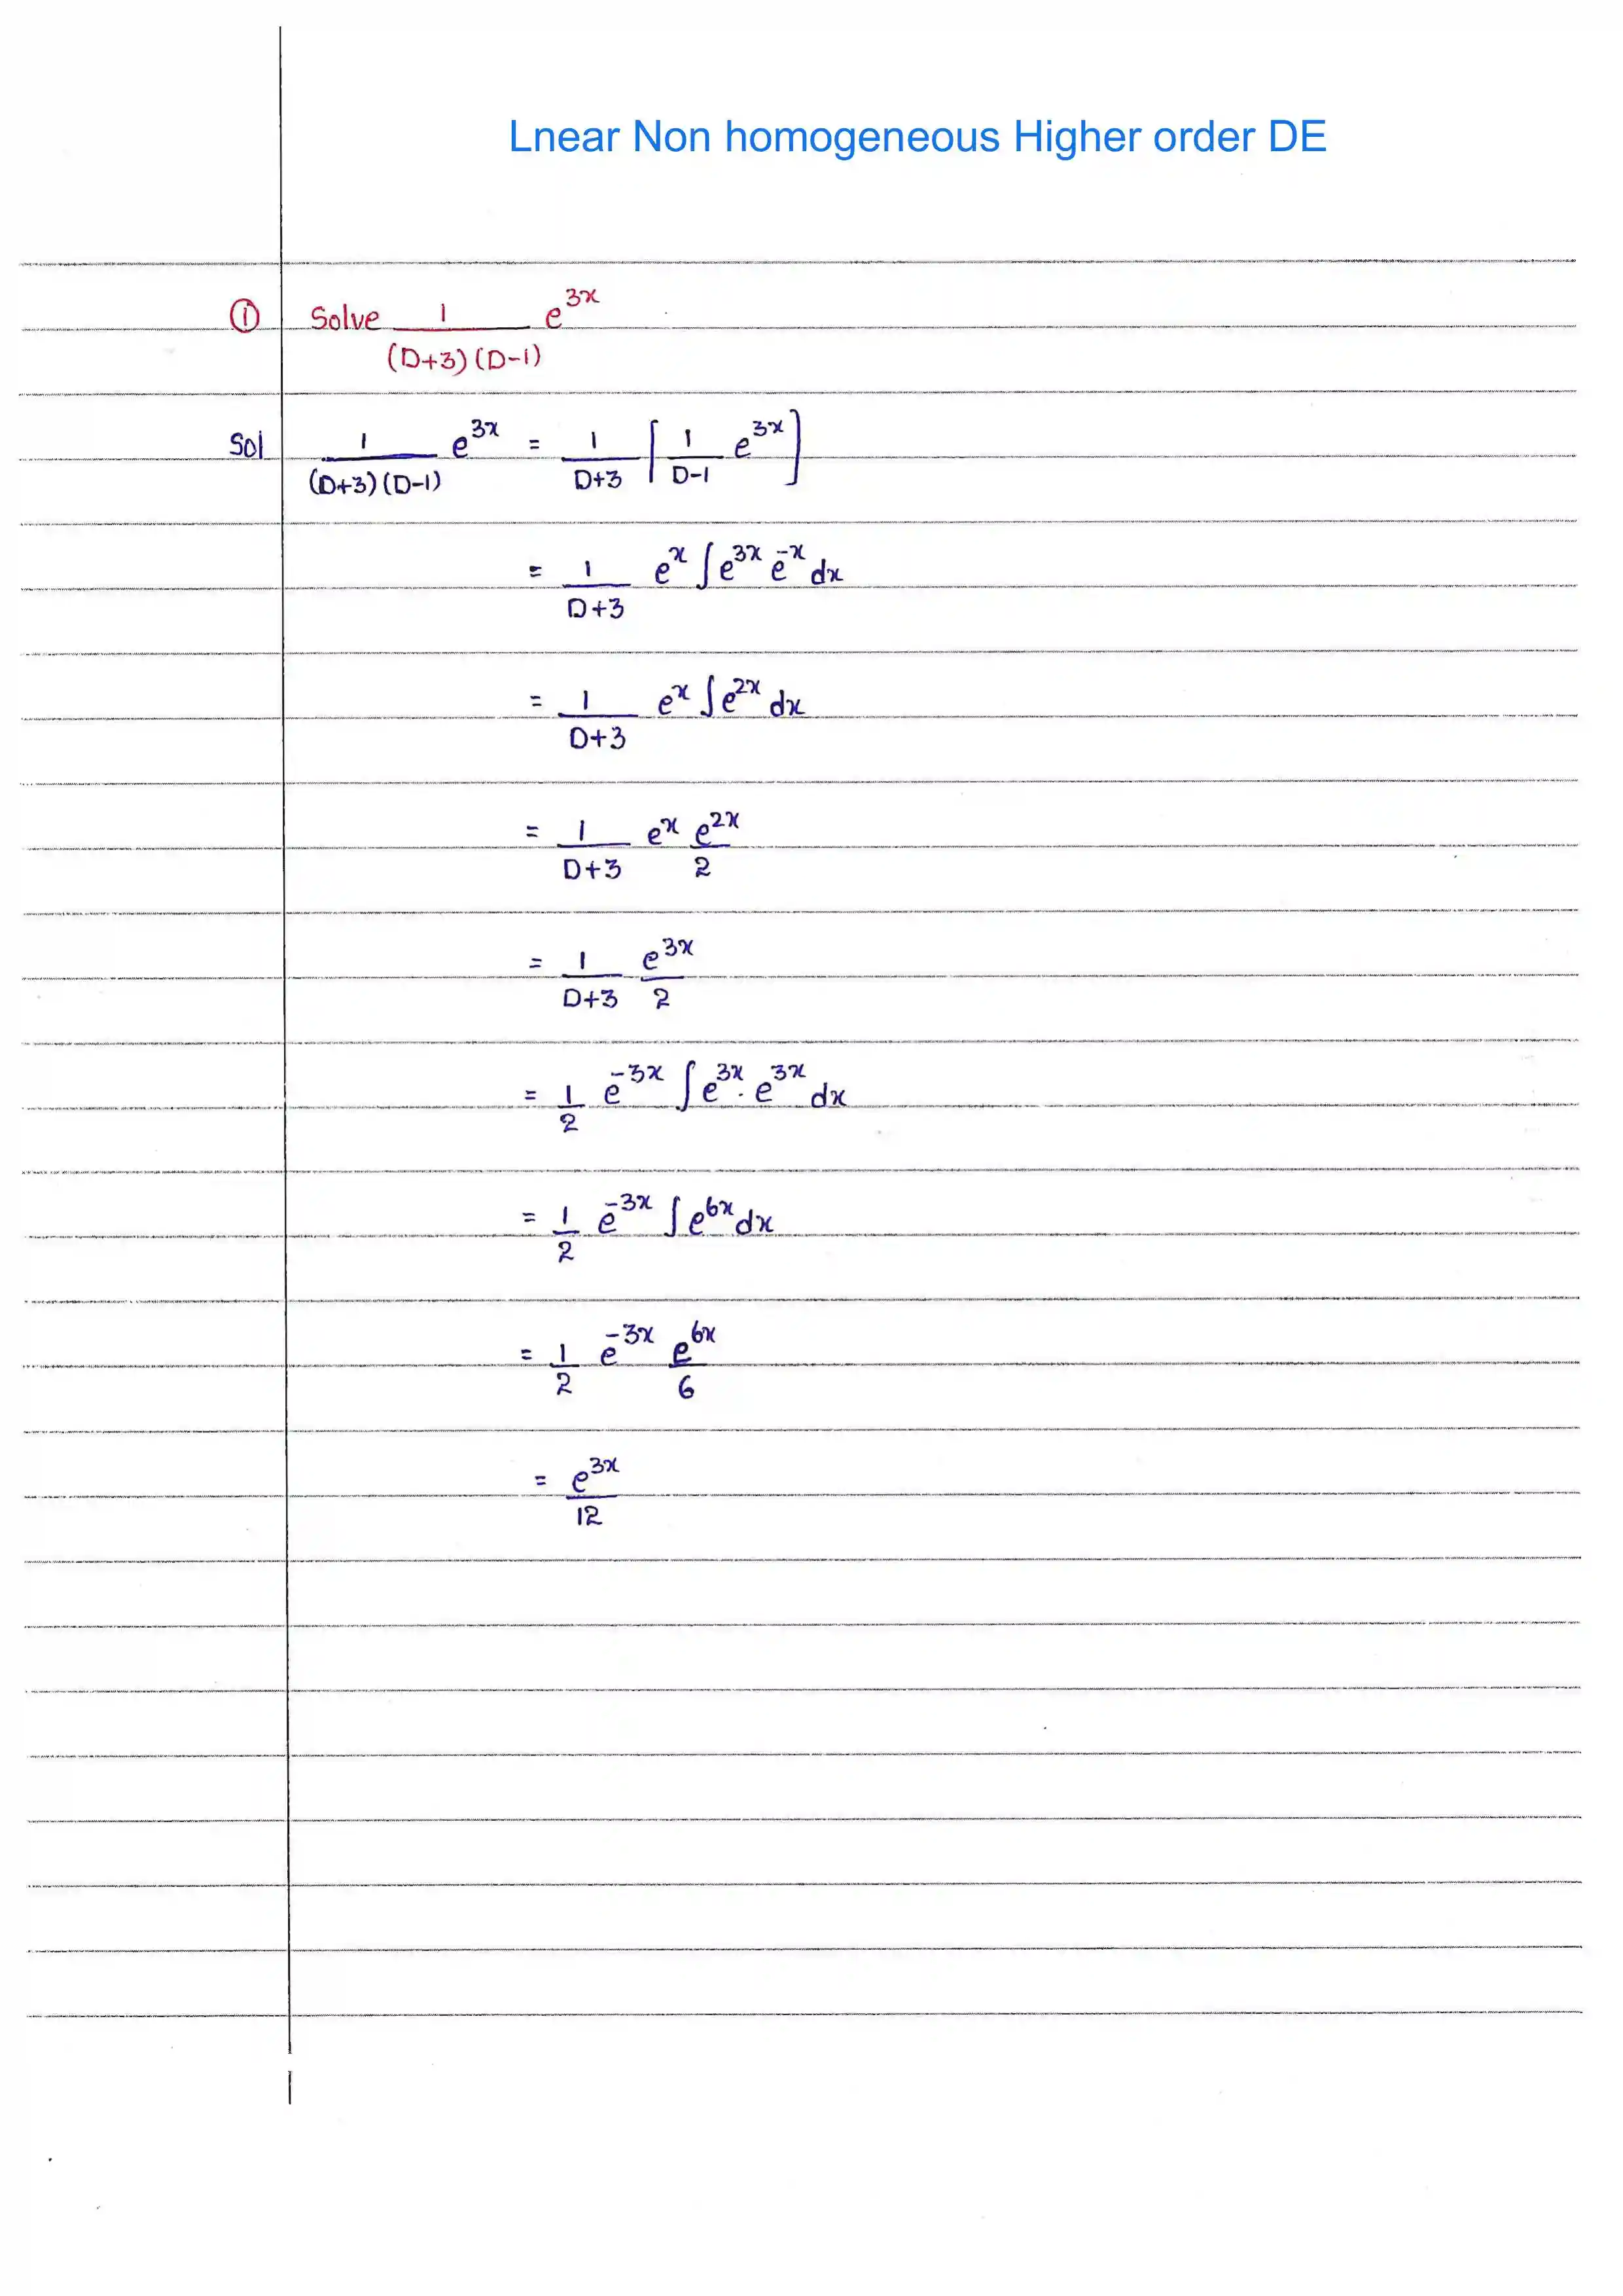 Lnear Non homogeneous Higher order DE
① Solve 1/((D+3)(D-1)) e^{3x}
Sol 1/((D+3)(D-1)) e^{3x} = 1/(D+3) [1/(D-1) e^{3x}]
= 1/(D+3) e^{x} ∫e^{3x} e^{-x} dx
= 1/(D+3) e^{x} ∫e^{2x} dx
= 1/(D+3) e^{x} e^{2x}/2
= 1/(D+3) e^{3x}/2
= 1/2 e^{-3x} ∫e^{3x} . e^{3x} dx
= 1/2 e^{-3x} ∫e^{6x} dx
= 1/2 e^{-3x} e^{6x}/6
= e^{3x}/12